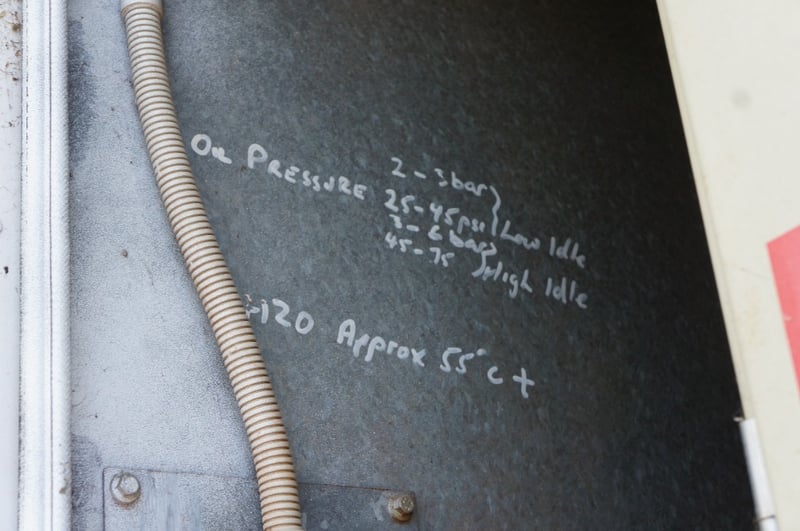 Oil PRESSURE 2-3 bar
25-45 psi } Low Idle
3-6 bar
45-75 } High Idle
H20 Approx 55°C +